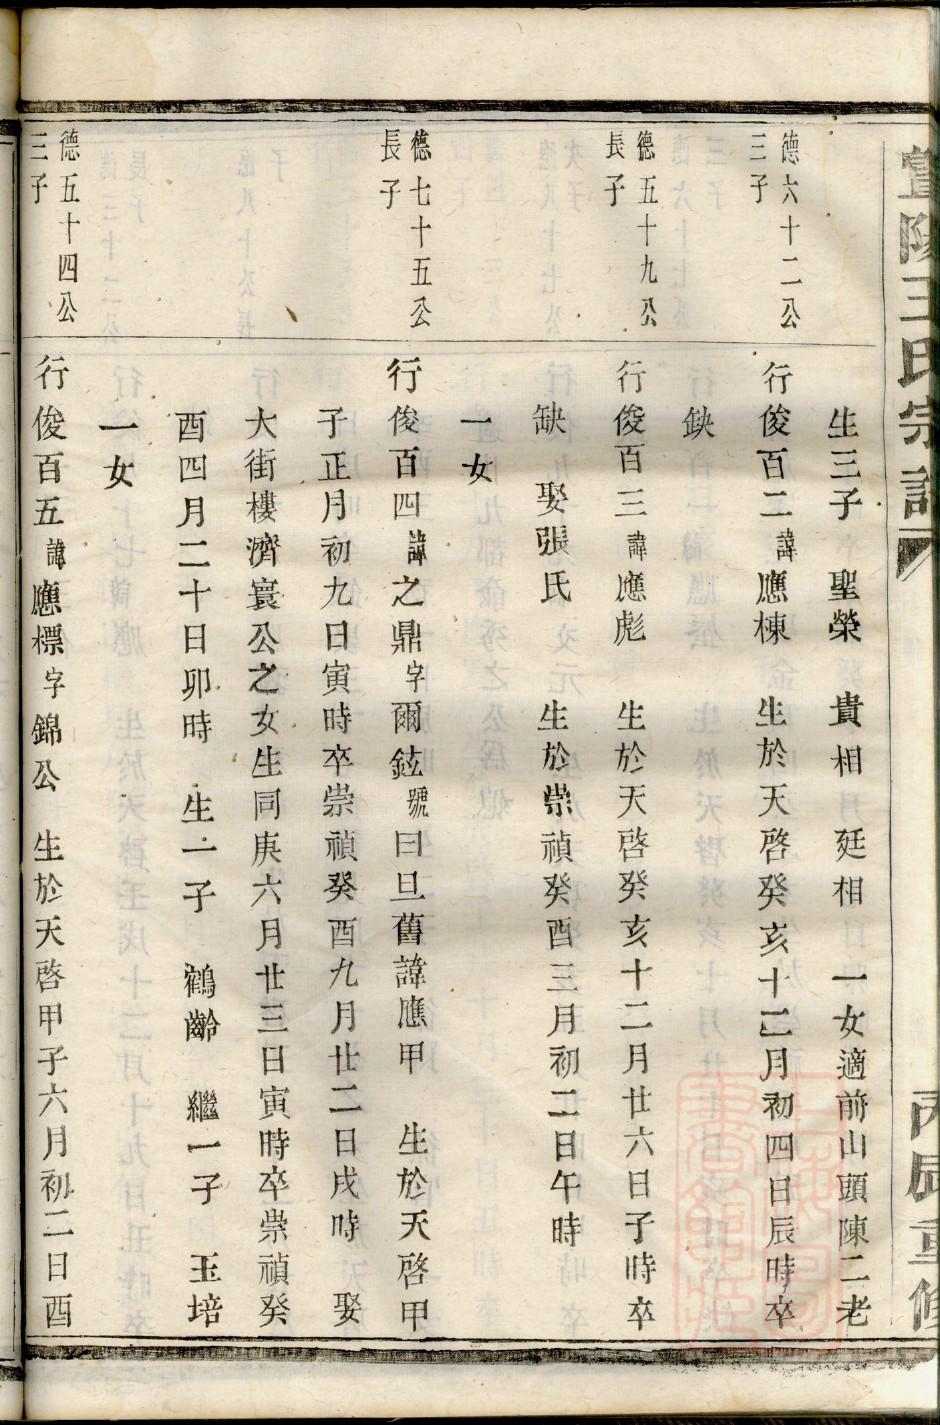 暨陽王氏宗譜
丙辰重修
生三子 聖榮 貴相 廷相 一女適前山頭陳二老
德六十二公
三子
行俊百二諱應棟 生於天啓癸亥十二月初四日辰時卒
缺
德五十九公
長子
行俊百三諱應彪 生於天啓癸亥十二月廿六日子時卒
缺 娶張氏 生於崇禎癸酉三月初二日午時
一女
德七十五公
長子
行俊百四諱之鼎字爾鉉號曰旦舊諱應甲 生於天啓甲
子正月初九日寅時卒崇禎癸酉九月廿二日戌時 娶
大街樓濟寰公之女生同庚六月廿三日寅時卒崇禎癸
酉四月二十日卯時 生一子 鶴齡 繼一子 玉培
一女
德五十四公
三子
行俊百五諱應標字錦公 生於天啓甲子六月初二日酉